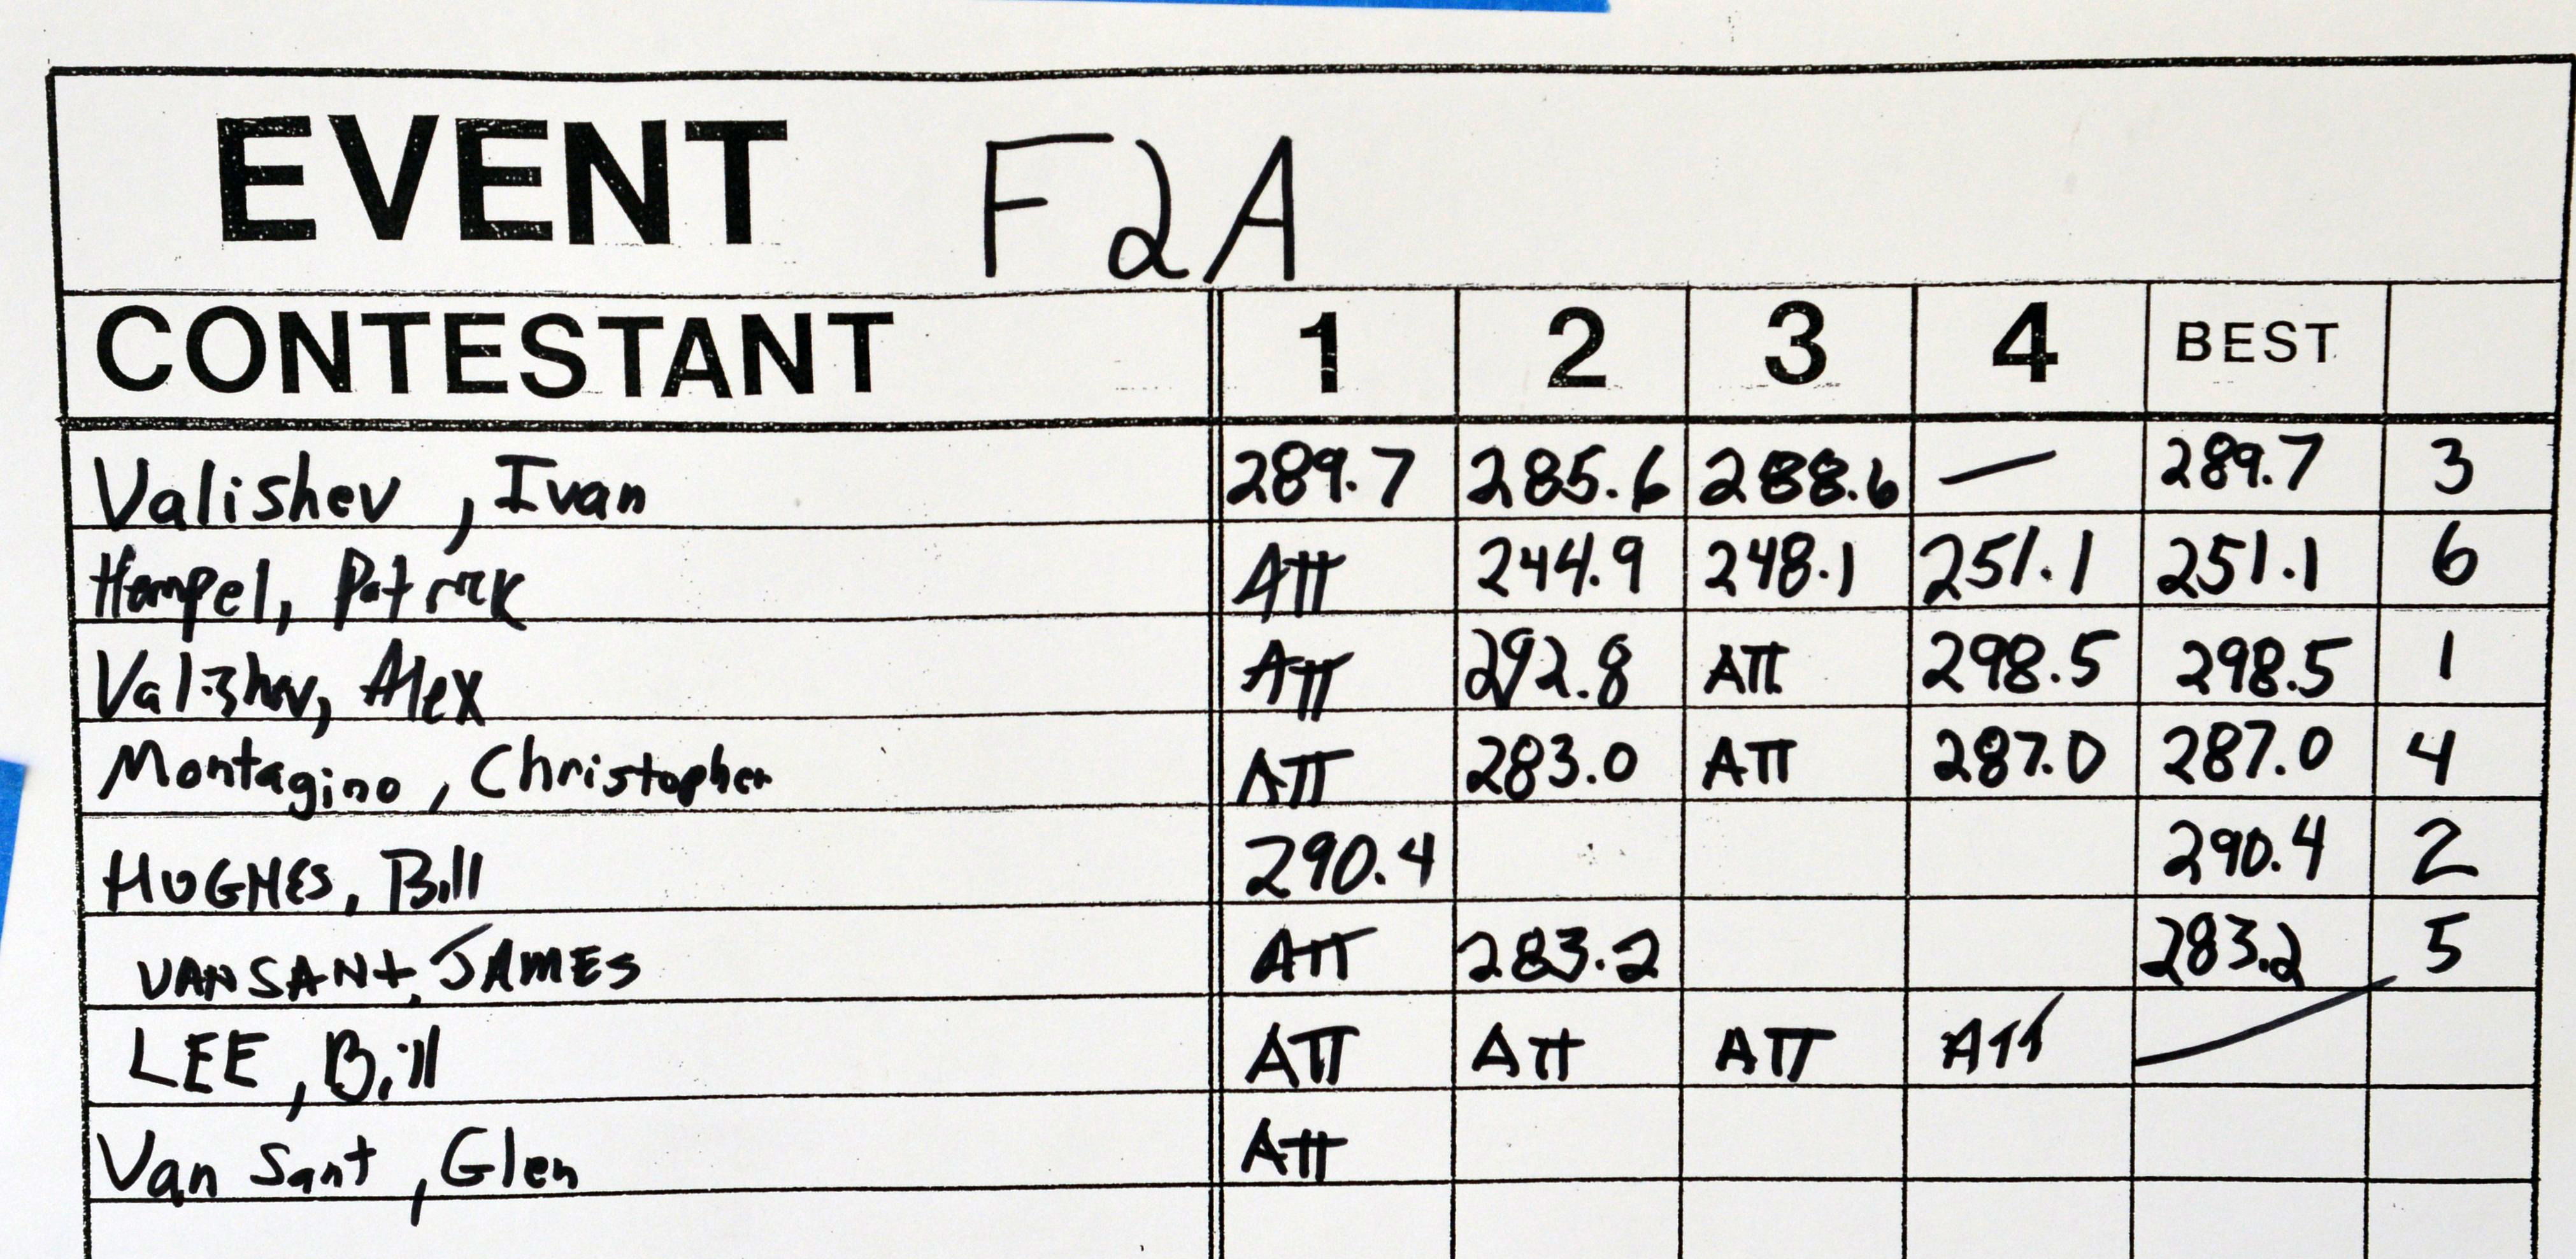 EVENT F2A
CONTESTANT 1 2 3 4 BEST
Valishev, Ivan 289.7 285.6 288.6 — 289.7 3
Hempel, Patrick ATT 244.9 248.1 251.1 251.1 6
Valishev, Alex ATT 292.8 ATT 298.5 298.5 1
Montagino, Christopher ATT 283.0 ATT 287.0 287.0 4
HUGHES, Bill 290.4 290.4 2
VANSANt, JAMES ATT 283.2 283.2 5
LEE, Bill ATT Att ATT ATT
Van Sant, Glen Att